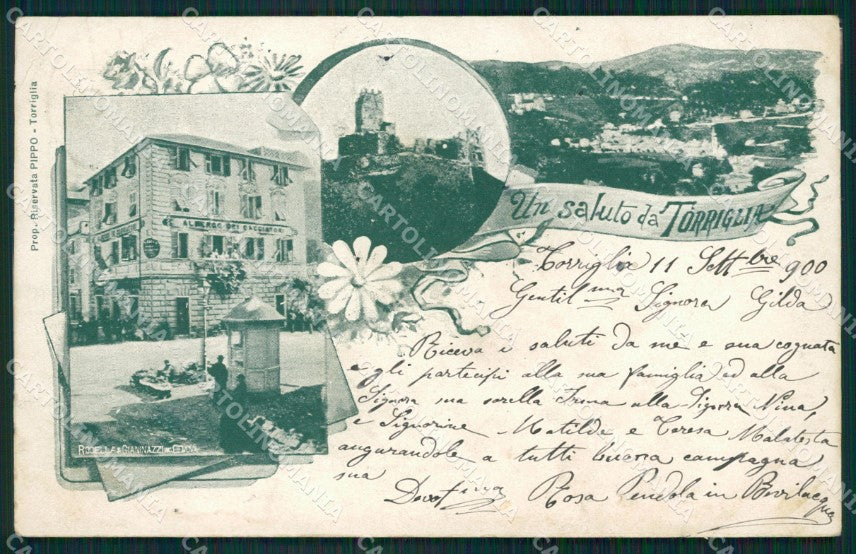 Prop. Riservata PIPPO - Torriglia
ALBERGO DEI CACCIATORI
Un saluto da TORRIGLIA
Torriglia 11 Settbre 900
Gentilma Signora Gilda
Riceva i saluti da me e sua cognata
e gli partecipi alla sua famiglia ed alla
Signora sua sorella Irma alla Signora Nina
e Signorine Matilde e Teresa Malatesta
augurandole a tutti buona campagna
sua
Devotma Rosa Pendola in Bevilacqua
GIANNAZZI
CARTOLINOMANIA